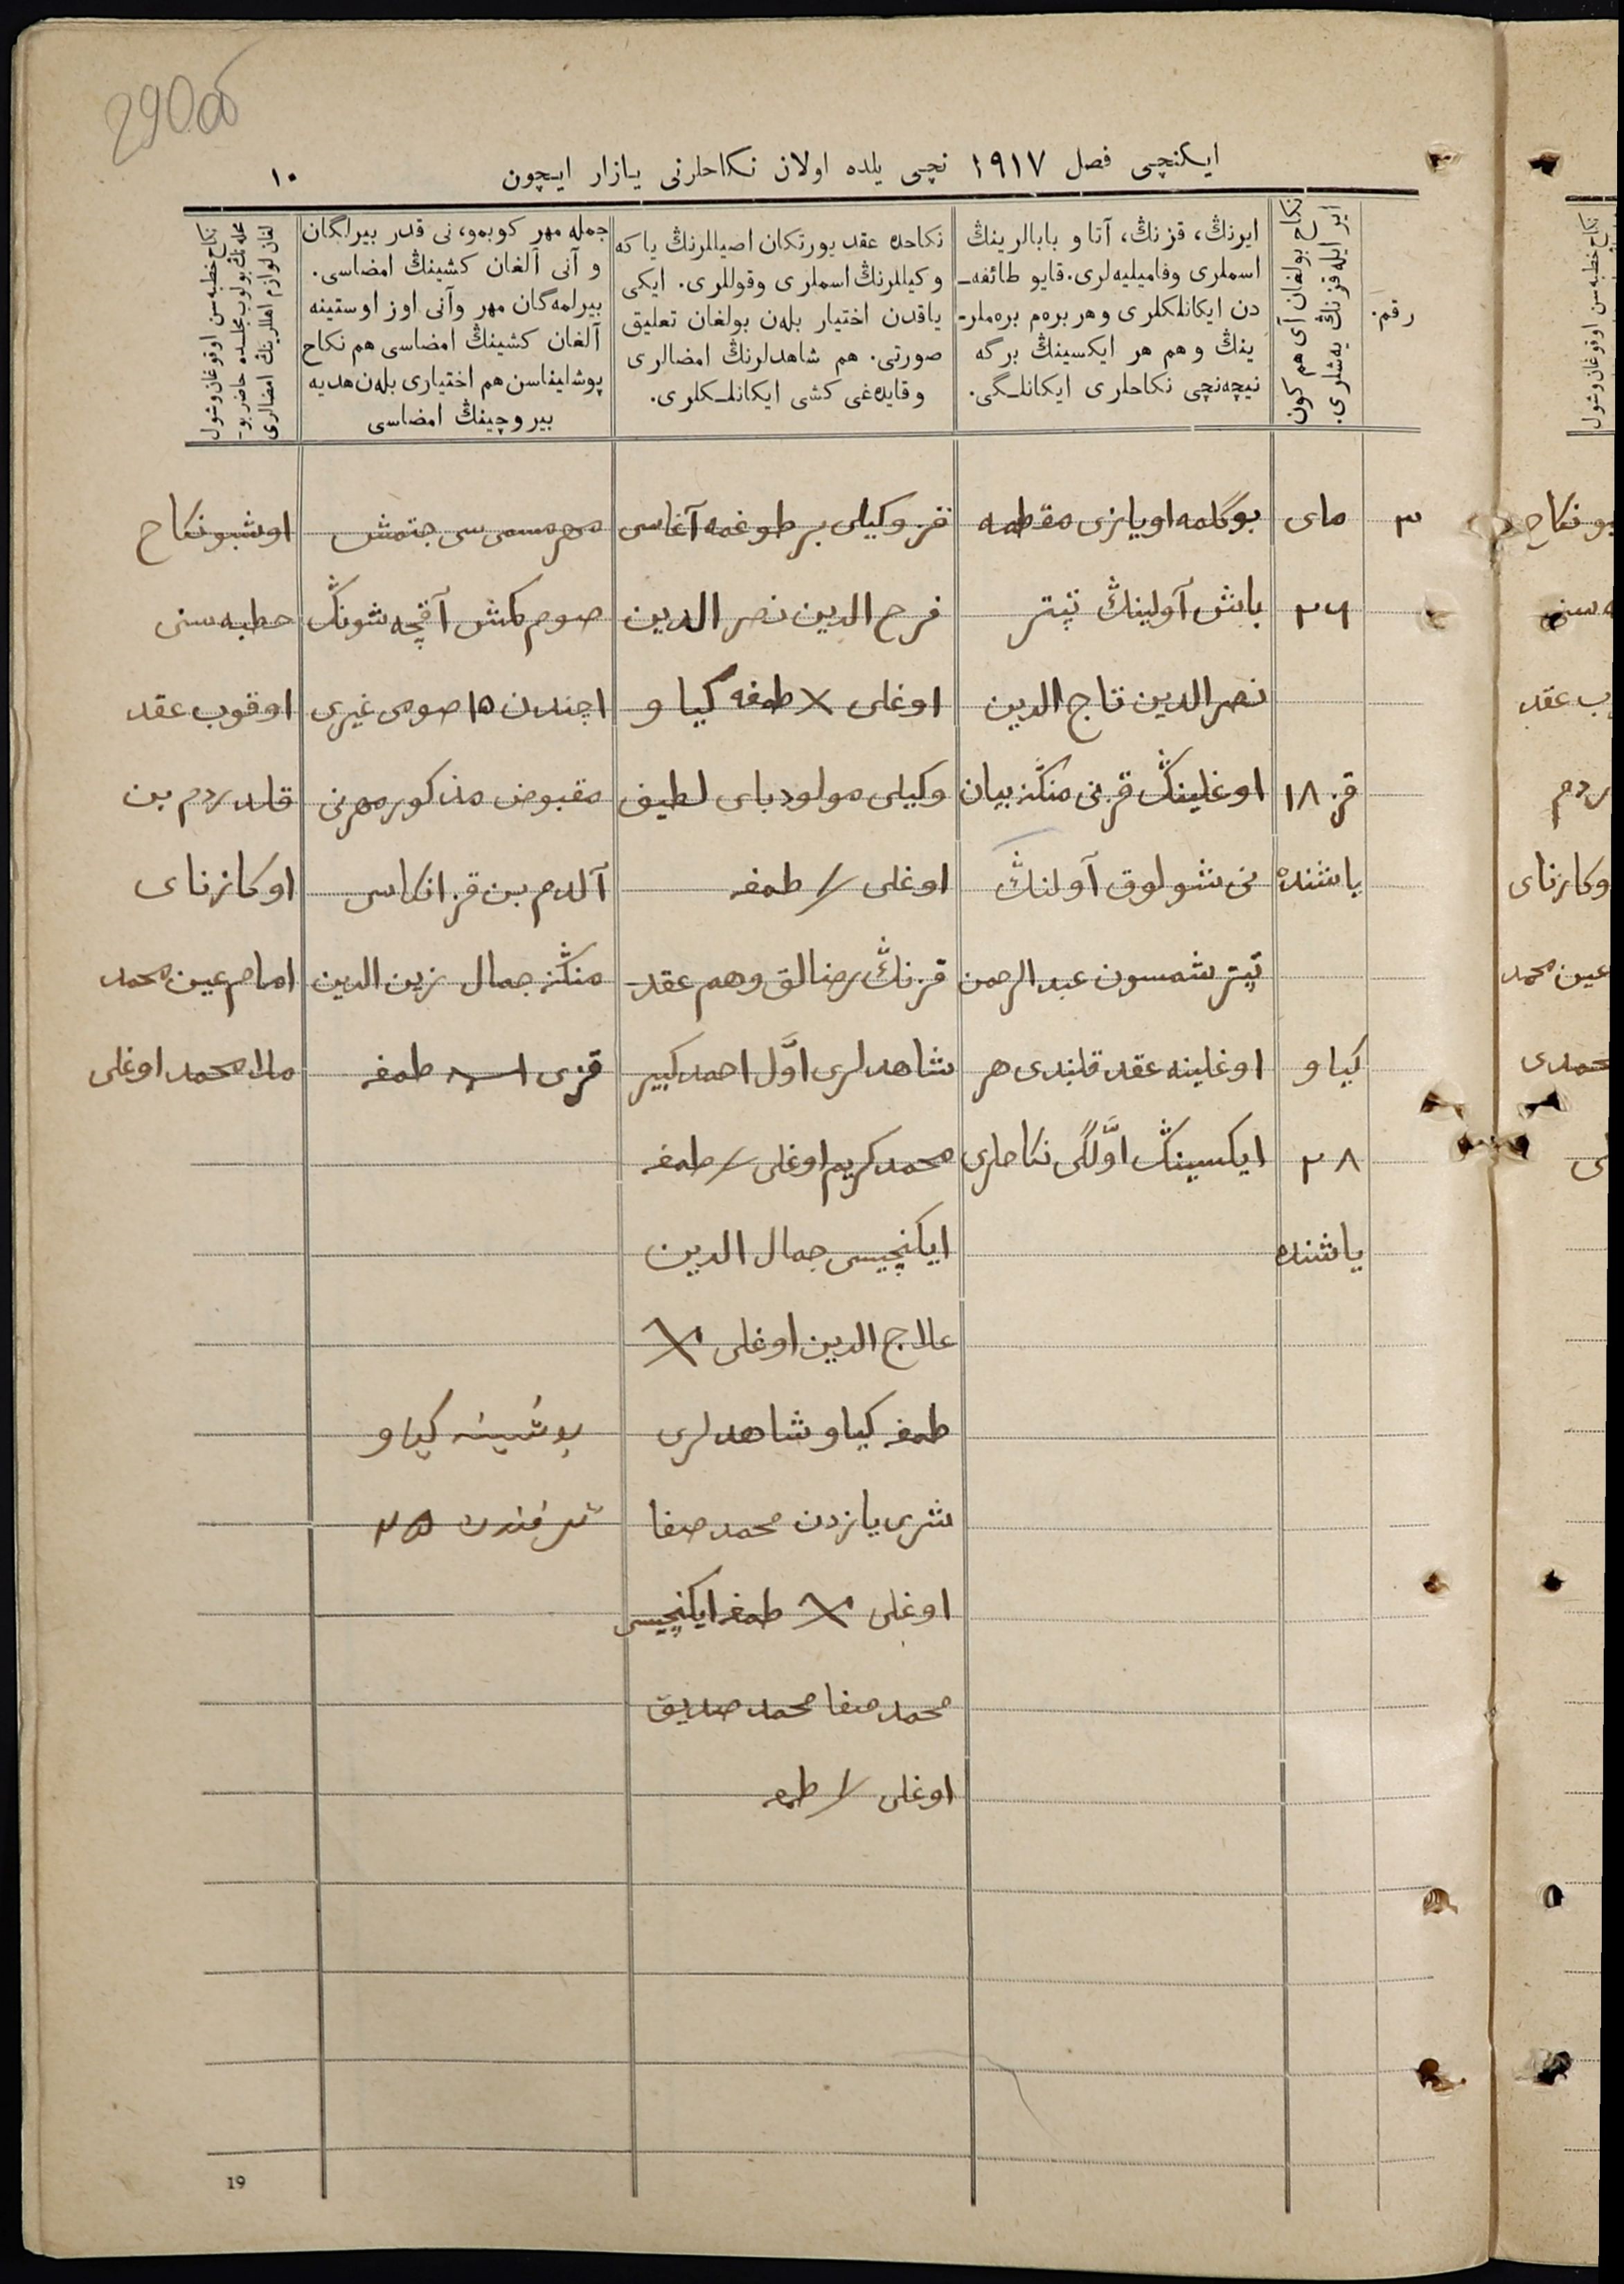 290об
ایکنچی فصل ۱۹۱۷ نچی یلده اولان نکاحلرنی یازار ایچون
۱۰
رقم.
نکاح بولغان آی هم کون
ایر ایله قزنڭ یه‌شلری.
ایرنڭ، قزنڭ، آتا و بابالرینڭ
اسملری وفامیلیه‌لری. قایو طائفه‌ـ
دن ایکانلکلری وهر بره‌م بره‌ملرـ
ینڭ وهم هر ایکسینڭ برگه
نیچه‌نچی نکاحلری ایکانلـگی.
نکاحده عقد یورتکان اصیللرنڭ یاکه
وکیللرنڭ اسملری وقوللری. ایکی
یاقدن اختیار بله‌ن بولغان تعلیق
صورتی. هم شاهدلرنڭ امضالری
وقایده‌غی کشی ایکانلـکلری.
جمله مهر کوبمو، نی قدر بیرلگان
و آنی آلغان کشینڭ امضاسی.
بیرلمه‌گان مهر وآنی اوز اوستینه
آلغان کشینڭ امضاسی هم نکاح
پوشلیناسن هم اختیاری بله‌ن هدیه
بیروچینڭ امضاسی
نکاح خطبه سن اوقوغان وشول
محله‌نڭ بولوب مجلسده حاضر بوـ
لغان لوازم اهللرینڭ امضالری
۳
مای
۲۶
قز ۱۸
یاشنده
کیاو
۲۸
یاشنده
بوگلمه اویازی مقطمه
باش آولینڭ تپتر
نصرالدین تاج الدین
اوغلینڭ قزنی منکز بیان
نی شولوق آولنڭ
تپتر شمسون عبد الرحمن
اوغلینه عقد قلندی هر
ایکسینڭ اوّلگی نکاحلری
قز وکیلی بر طوغمه آغاسی
فرح الدین نصر الدین
اوغلی X طمغه کیاو
وکیلی مولود بای لطیف
اوغلی / طمغه
قزنڭ رضالق وهم عقد
شاهدلری اوّل احمد کبیر
محمد کریم اوغلی / طمغه
ایکنچیسی جمال الدین
علاج الدین اوغلی X
طمغه کیاو شاهدلری
شری یازدن محمد صفا
اوغلی X طمغه ایکنچیسی
محمد صفا محمد صدیق
اوغلی / طمغه
مهر مسمی سی جتمش
صوم کمش آقچه شونڭ
اچندن ۱۵ صومی غیری
مقبوض مذکور مهرنی
آلدم بن قز اناسی
منکز جمال زین الدین
قزی طمغه
پوشلینه کیاو
طرفندن ۲۵
اوشبو نکاح
خطبه سنی
اوقوب عقد
قلدردم بن
اوکازنای
امام عین محمد
ملا محمد اوغلی
19